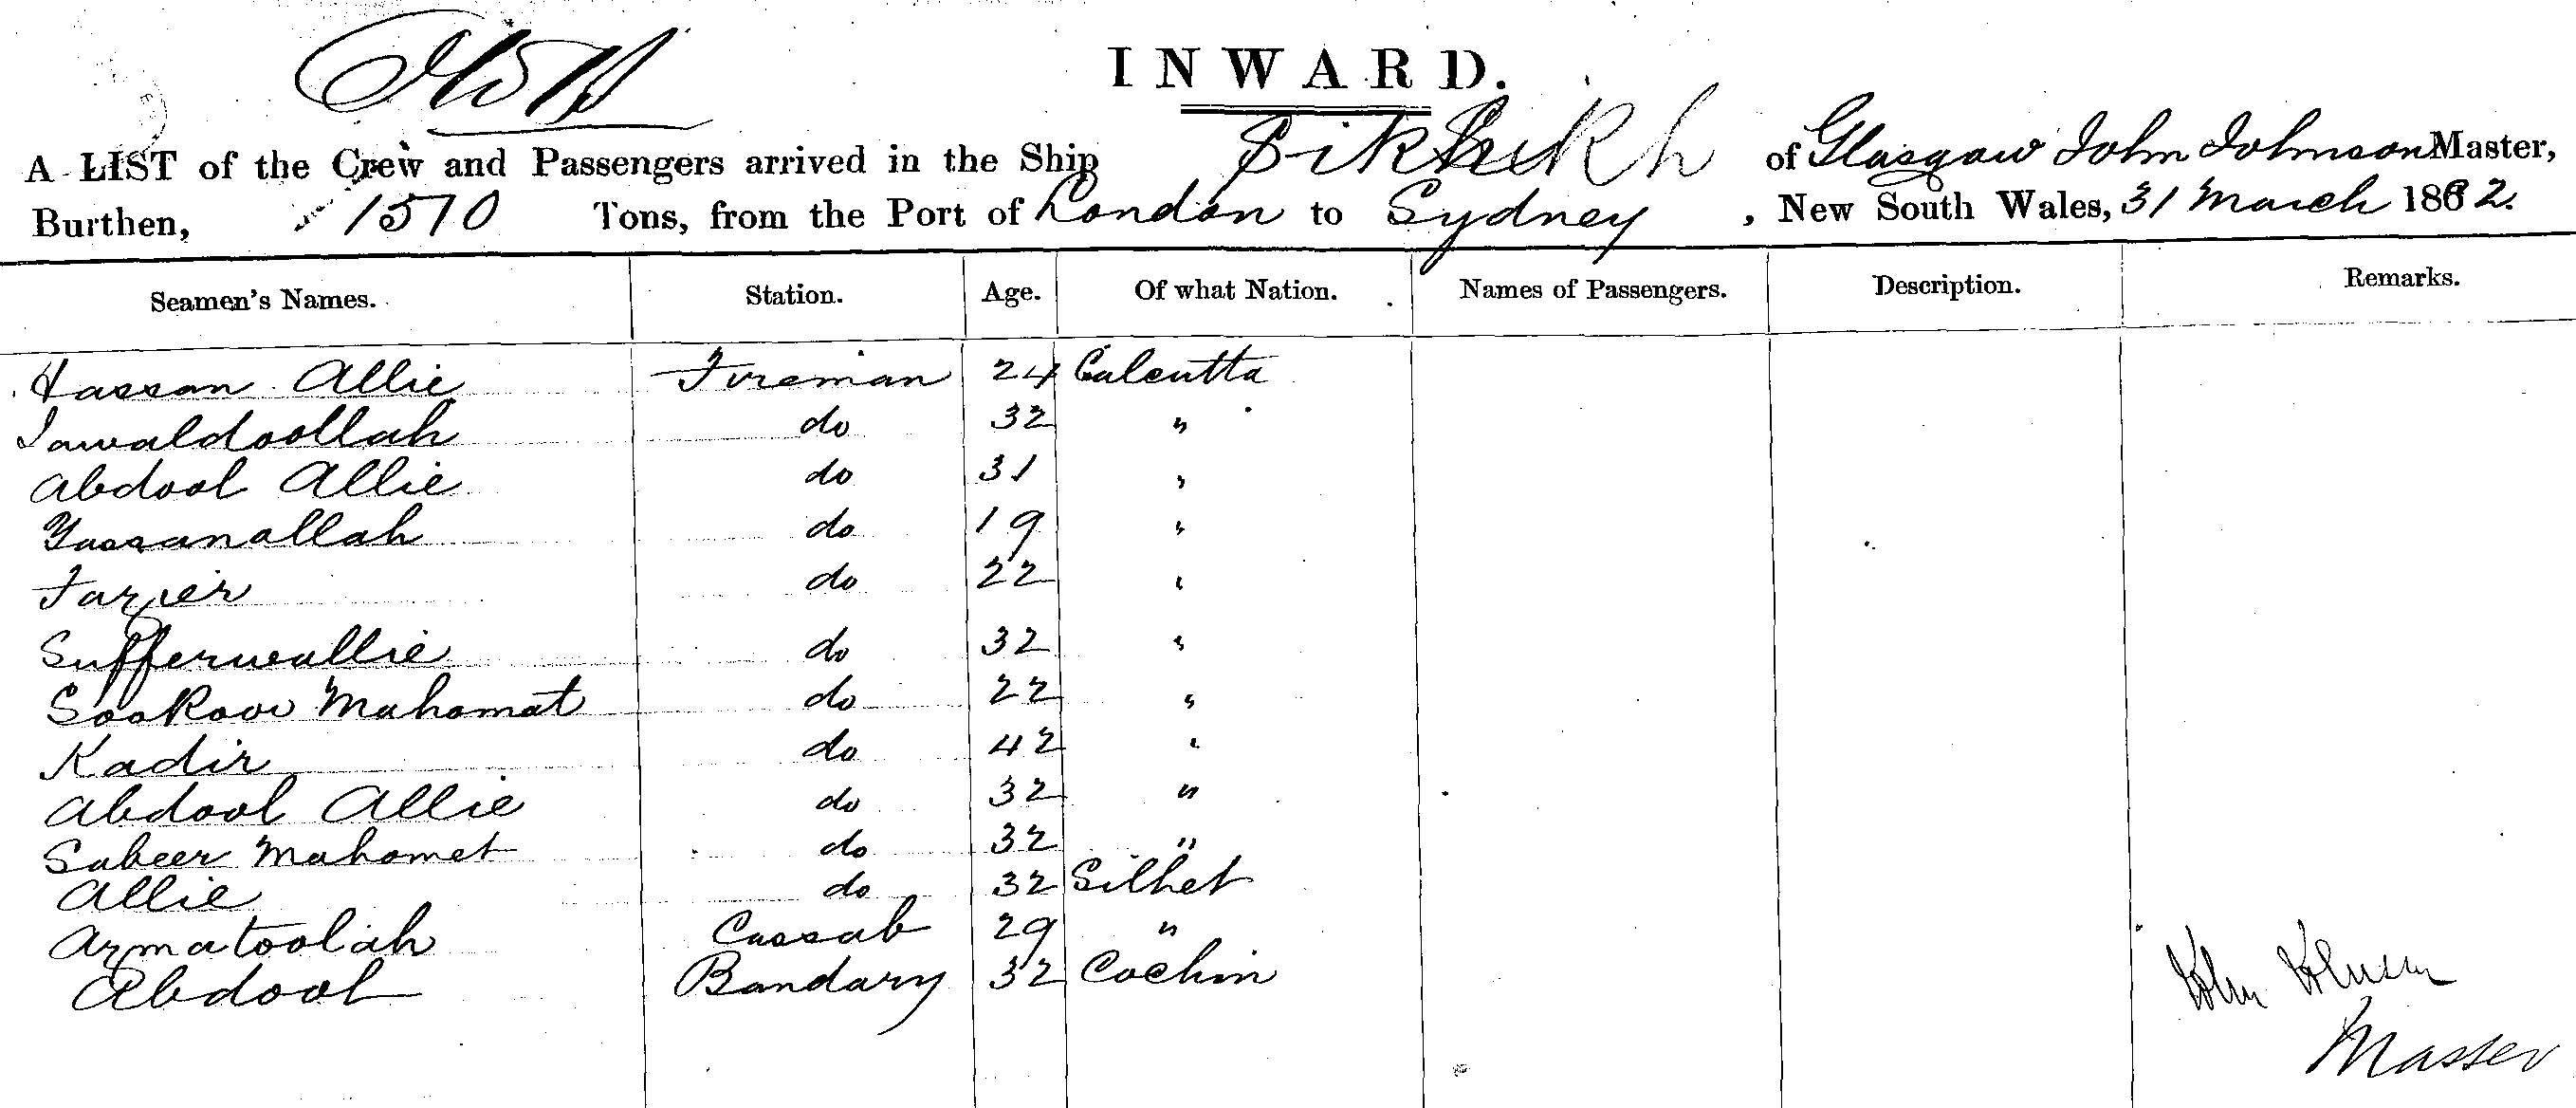 INWARD.
A LIST of the Crew and Passengers arrived in the Ship Sikh of Glasgow John Johnson Master,
Burthen, 1510 Tons, from the Port of London to Sydney, New South Wales, 31 March 1882.
Seamen's Names. Station. Age. Of what Nation. Names of Passengers. Description. Remarks.
Hassan Allie Fireman 24 Calcutta
Jawaldoollah do 32 "
Abdool Allie do 31 "
Yassanallah do 19 "
Fazier do 22 "
Sufferwallie do 32 "
Mahomat do 22 "
Kadir do 42 "
Abdool Allie do 32 "
Sabeer Mahomet do 32 "
Allie do 32 Silhet
Armatoolah Cassab 29 "
Abdool Bandary 32 Cochin
John Johnson
Master